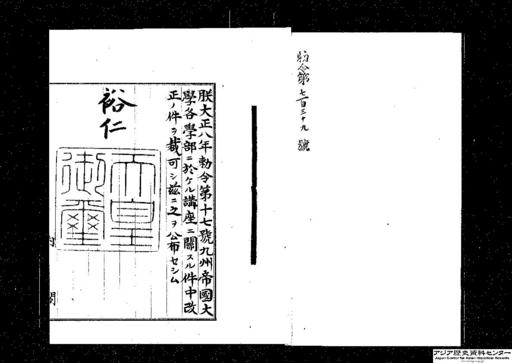 勅令第七百三十九號
朕大正八年勅令第十七號九州帝國大
學各學部ニ於ケル講座ニ關スル件中改
正ノ件ヲ裁可シ茲ニ之ヲ公布セシム
裕仁
天皇
御璽
内閣
アジア歴史資料センター
Japan Center for Asian Historical Records